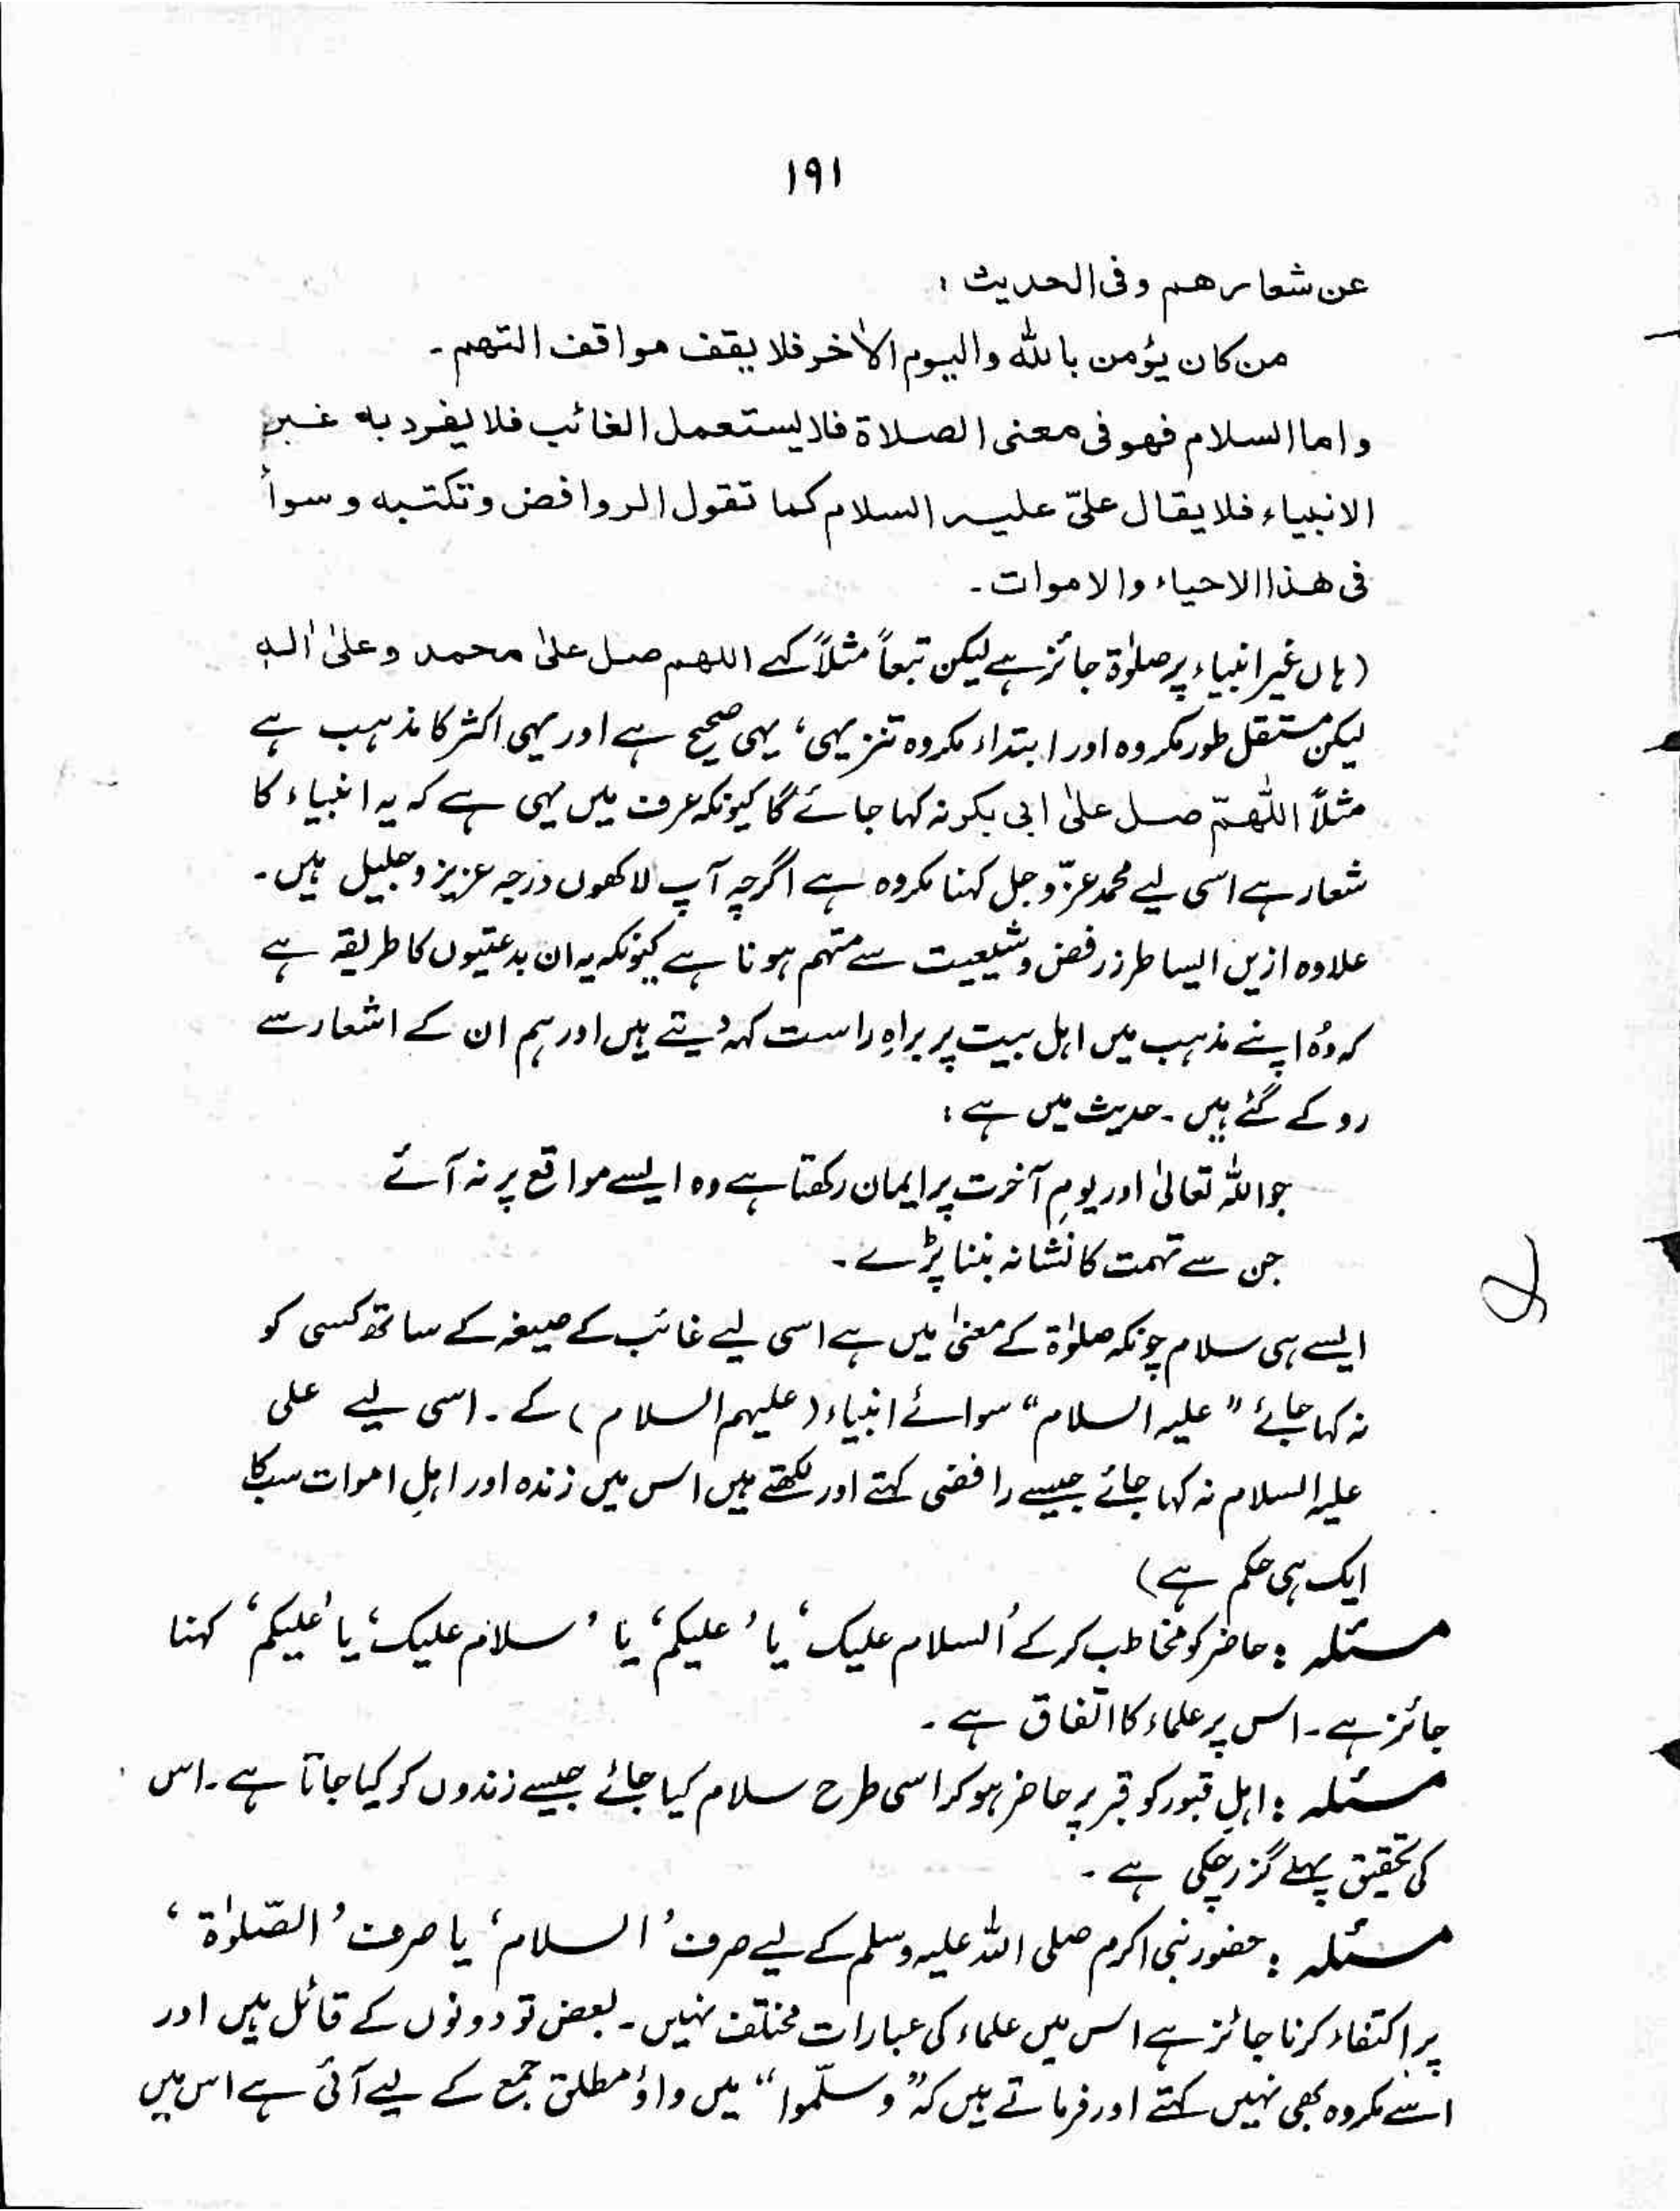 ۱۹۱
عن شعارهم وفی الحدیث :
من کان یؤمن باللہ والیوم الاٰخر فلا یقف مواقف التهم ۔
واما السلام فهو فی معنی الصلاة فلا یستعمل الغائب فلا یفرد به غیر
الانبیاء فلا یقال علیّ علیه السلام کما تقول الروافض وتکتبه وسوأ
فی هذا الاحیاء والاموات ۔
(ہاں غیر انبیاء پر صلوٰۃ جائز ہے لیکن تبعاً مثلاً کہے اللهم صل علیٰ محمد وعلیٰ اٰله
لیکن مستقل طور مکروہ اور ابتداء مکروہ تنزیہی، یہی صحیح ہے اور یہی اکثر کا مذہب ہے
مثلاً اللّٰهمّ صل علیٰ ابی بکر نہ کہا جائے گا کیونکہ عرف میں یہی ہے کہ یہ انبیاء کا
شعار ہے اسی لیے محمد عزّوجل کہنا مکروہ ہے اگرچہ آپ لاکھوں درجہ عزیز و جلیل ہیں۔
علاوہ ازیں ایسا طرز رفض و شیعیت سے متہم ہونا ہے کیونکہ یہ ان بدعتیوں کا طریقہ ہے
کہ وُہ اپنے مذہب میں اہل بیت پر براہِ راست کہہ دیتے ہیں اور ہم ان کے اشعار سے
روکے گئے ہیں۔ حدیث میں ہے :
جو اللہ تعالیٰ اور یومِ آخرت پر ایمان رکھتا ہے وہ ایسے مواقع پر نہ آئے
جن سے تہمت کا نشانہ بننا پڑے۔
ایسے ہی سلام چونکہ صلوٰۃ کے معنیٰ میں ہے اسی لیے غائب کے صیغہ کے ساتھ کسی کو
نہ کہا جائے "علیہ السلام" سوائے انبیاء (علیہم السلام) کے۔ اسی لیے علی
علیہ السلام نہ کہا جائے جیسے رافضی کہتے اور لکھتے ہیں اس میں زندہ اور اہلِ اموات سب کا
ایک ہی حکم ہے)
مسئلہ : حاضر کو مخاطب کر کے 'السلام علیک' یا 'علیکم' یا 'سلام علیک' یا 'علیکم' کہنا
جائز ہے۔ اس پر علماء کا اتفاق ہے۔
مسئلہ : اہلِ قبور کو قبر پر حاضر ہو کر اسی طرح سلام کیا جائے جیسے زندوں کو کیا جاتا ہے۔ اس
کی تحقیق پہلے گزر چکی ہے۔
مسئلہ : حضور نبی اکرم صلی اللہ علیہ وسلم کے لیے صرف 'السلام' یا صرف 'الصّلوٰۃ'
پر اکتفاء کرنا جائز ہے اس میں علماء کی عبارات مختلف نہیں۔ بعض تو دونوں کے قائل ہیں اور
اسے مکروہ بھی نہیں کہتے اور فرماتے ہیں کہ "وسلّموا" میں واؤ مطلق جمع کے لیے آئی ہے اس میں